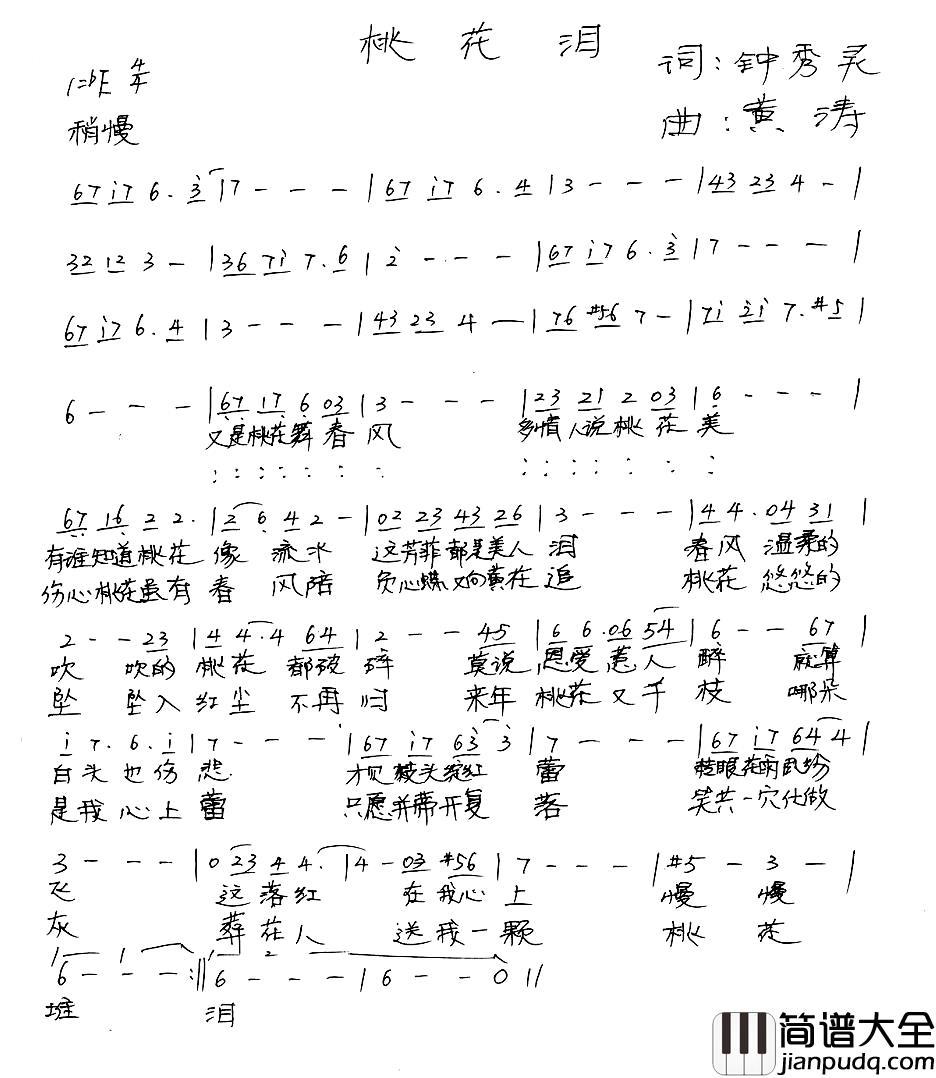 桃花泪
词:钟秀灵
1=bE 4/4
曲:黄涛
稍慢
67 i7 6. 3 | 7 - - - | 67 i7 6. 4 | 3 - - - | 43 23 4 - |
32 12 3 - | 36 7i 7. 6 | 2 - - - | 67 i7 6. 3 | 7 - - - |
67 i7 6. 4 | 3 - - - | 43 23 4 - | 76 #56 7 - | 7i 2i 7. #5 |
6 - - - | 67 17 6 03 | 3 - - - | 23 21 2 03 | 6 - - - |
又是桃花舞春风 多情人说桃花美
67 16 2 2. | 2 6 4 2 - | 02 23 43 26 | 3 - - - | 4 4. 04 31 |
有谁知道桃花像流水 这芳菲都是美人泪 春风温柔的
伤心桃花虽有春风陪 负心蝶又向黄花追 桃花悠悠的
2 - - 23 | 4 4. 4 64 | 2 - - 45 | 6 6. 06 54 | 6 - - 67 |
吹 吹的桃花都破碎 莫说恩爱惹人醉 就算
坠 坠入红尘不再归 来年桃花又千枝 哪朵
i 7. 6. i | 7 - - - | 67 i7 63 3 | 7 - - - | 67 i7 64 4 |
白头也伤悲 才见枝头绽红蕾 转眼花雨纷
是我心上蕾 只愿并蒂开复落 笑共一穴化做
3 - - - | 0 23 4 4. | 4 - 03 #56 | 7 - - - | #5 - 3 - |
飞 这落红在我心上 慢慢
灰 葬花人送我一颗 桃花
1 1 1 2
6 - - - :|| 6 - - - | 6 - - 0 ||
堆 泪
简谱大全
jianpudq.com